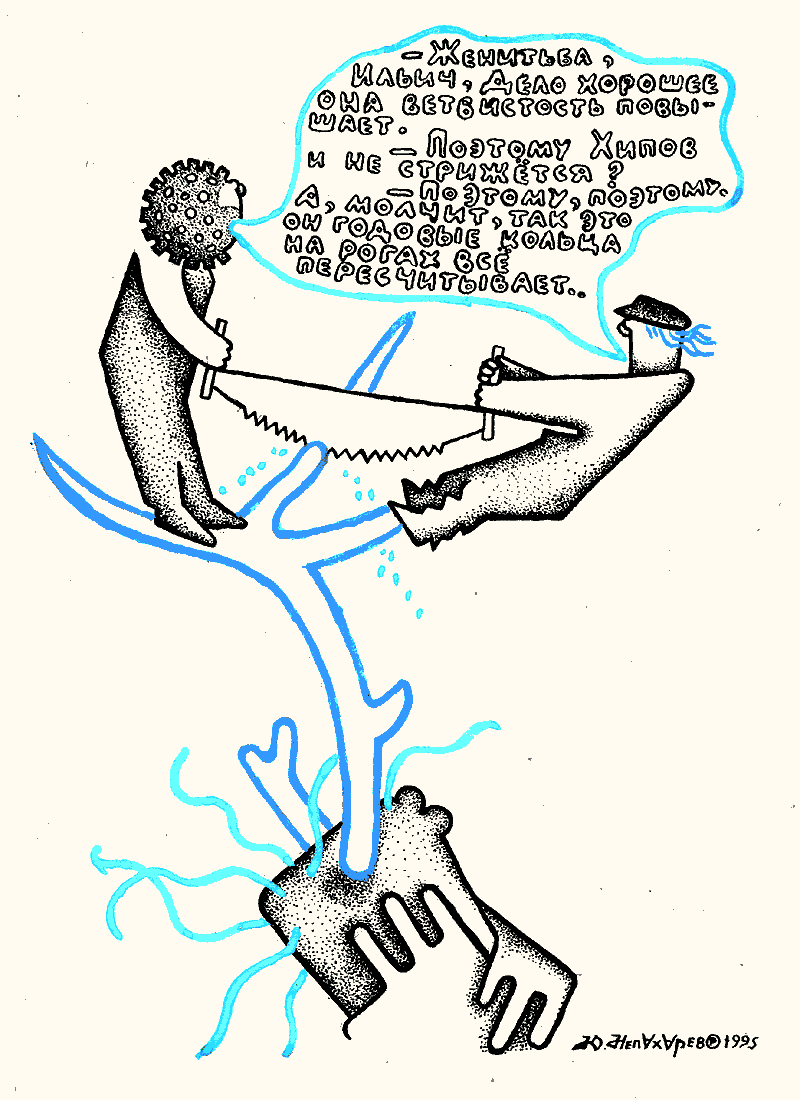 – Женитьба,
Ильич, дело хорошее
она ветвистость повы-
шает.
– Поэтому Хипов
и не стрижётся?
– Поэтому, поэтому.
А, молчит, так это
он годовые кольца
на рогах всё
пересчитывает..
Ю.НепАхАрев℗1995